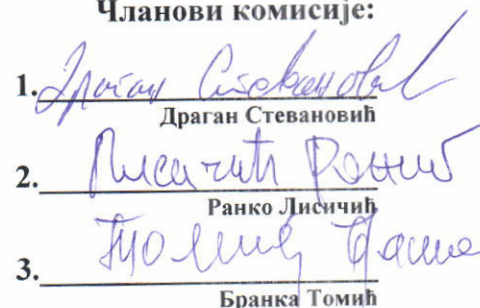 Чланови комисије:
1. Драган Стевановић
Драган Стевановић
2. Лисичић Ранко
Ранко Лисичић
3. Томић
Бранка Томић